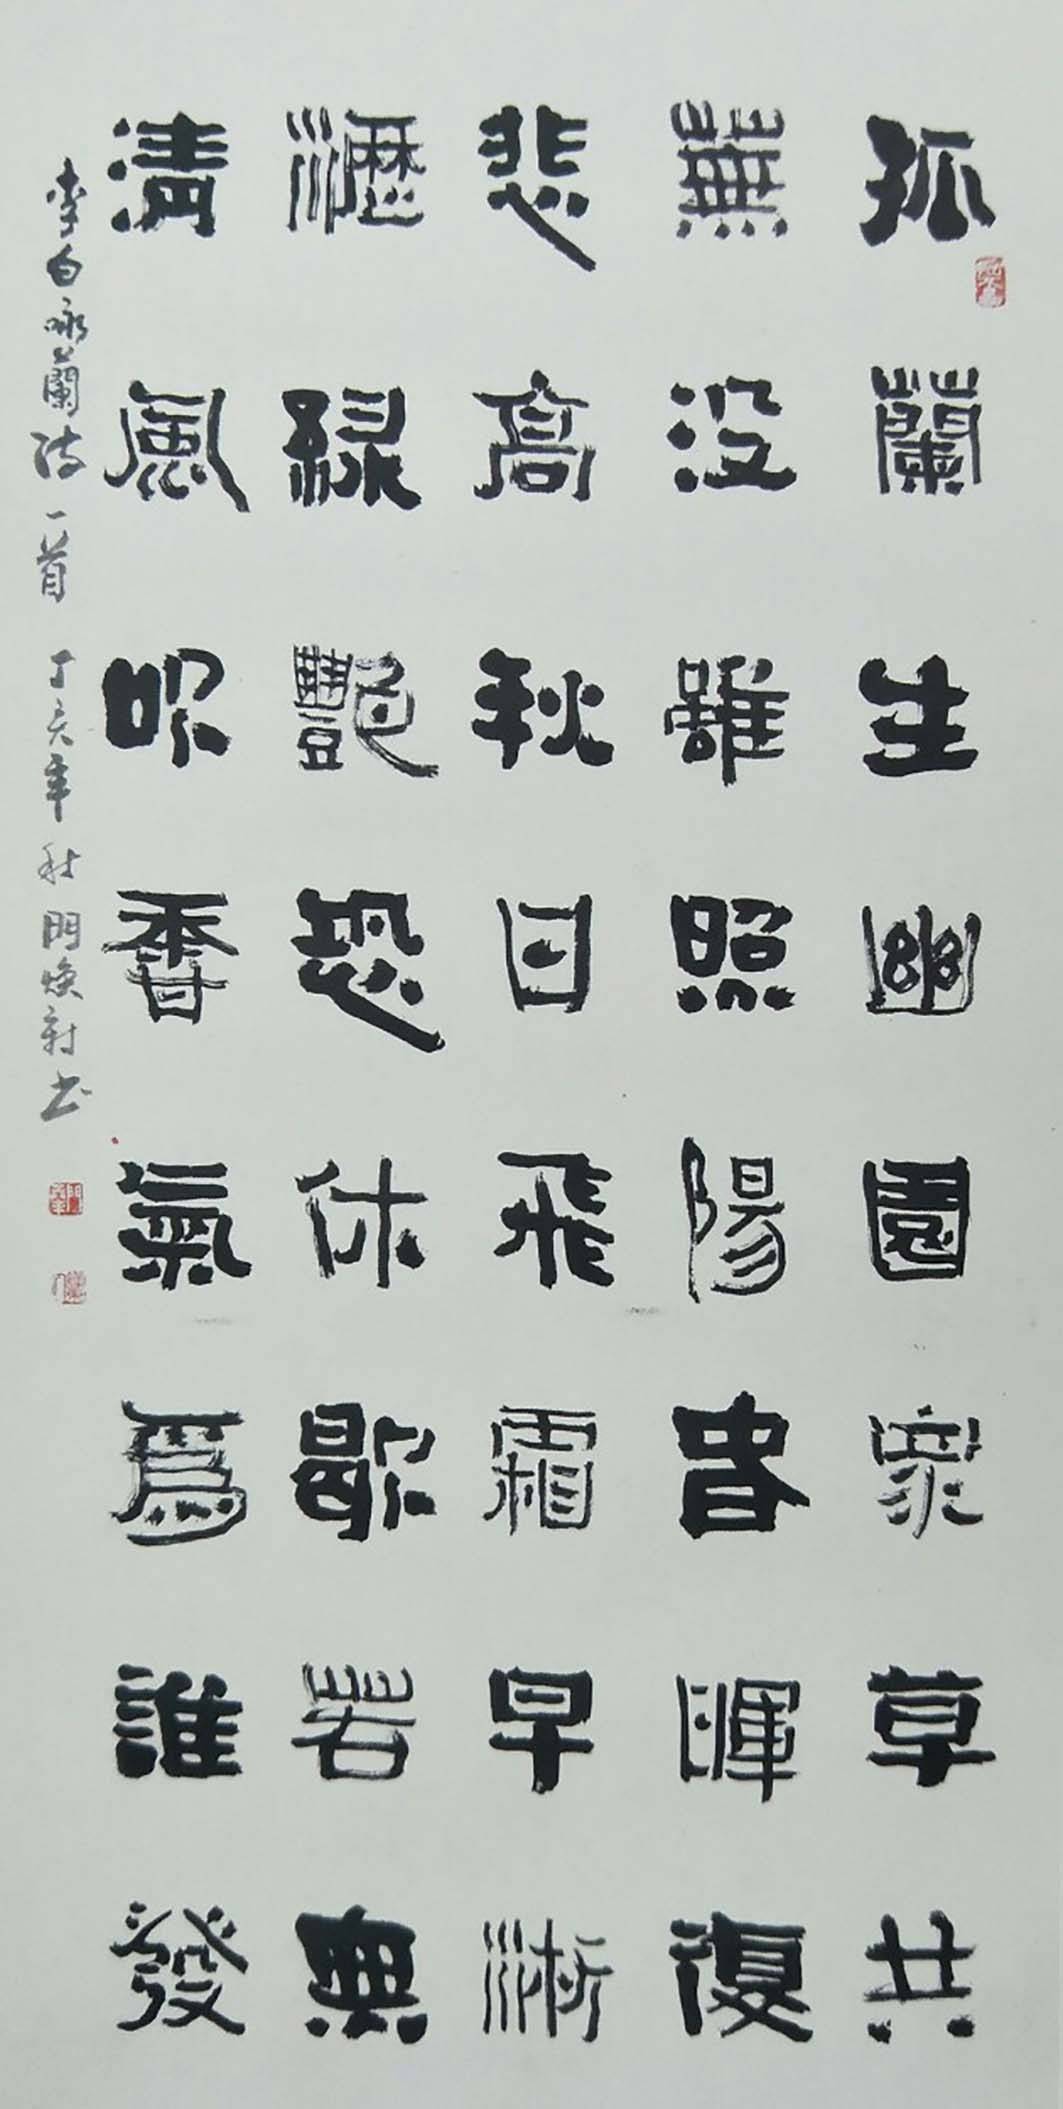 孤蘭生幽園衆草共
蕪没雖照陽春暉復
悲高秋月飛霜早淅
瀝緑艷恐休歇若無
清風吹香氣爲誰發
李白咏蘭诗一首 丁亥年秋 門焕新书